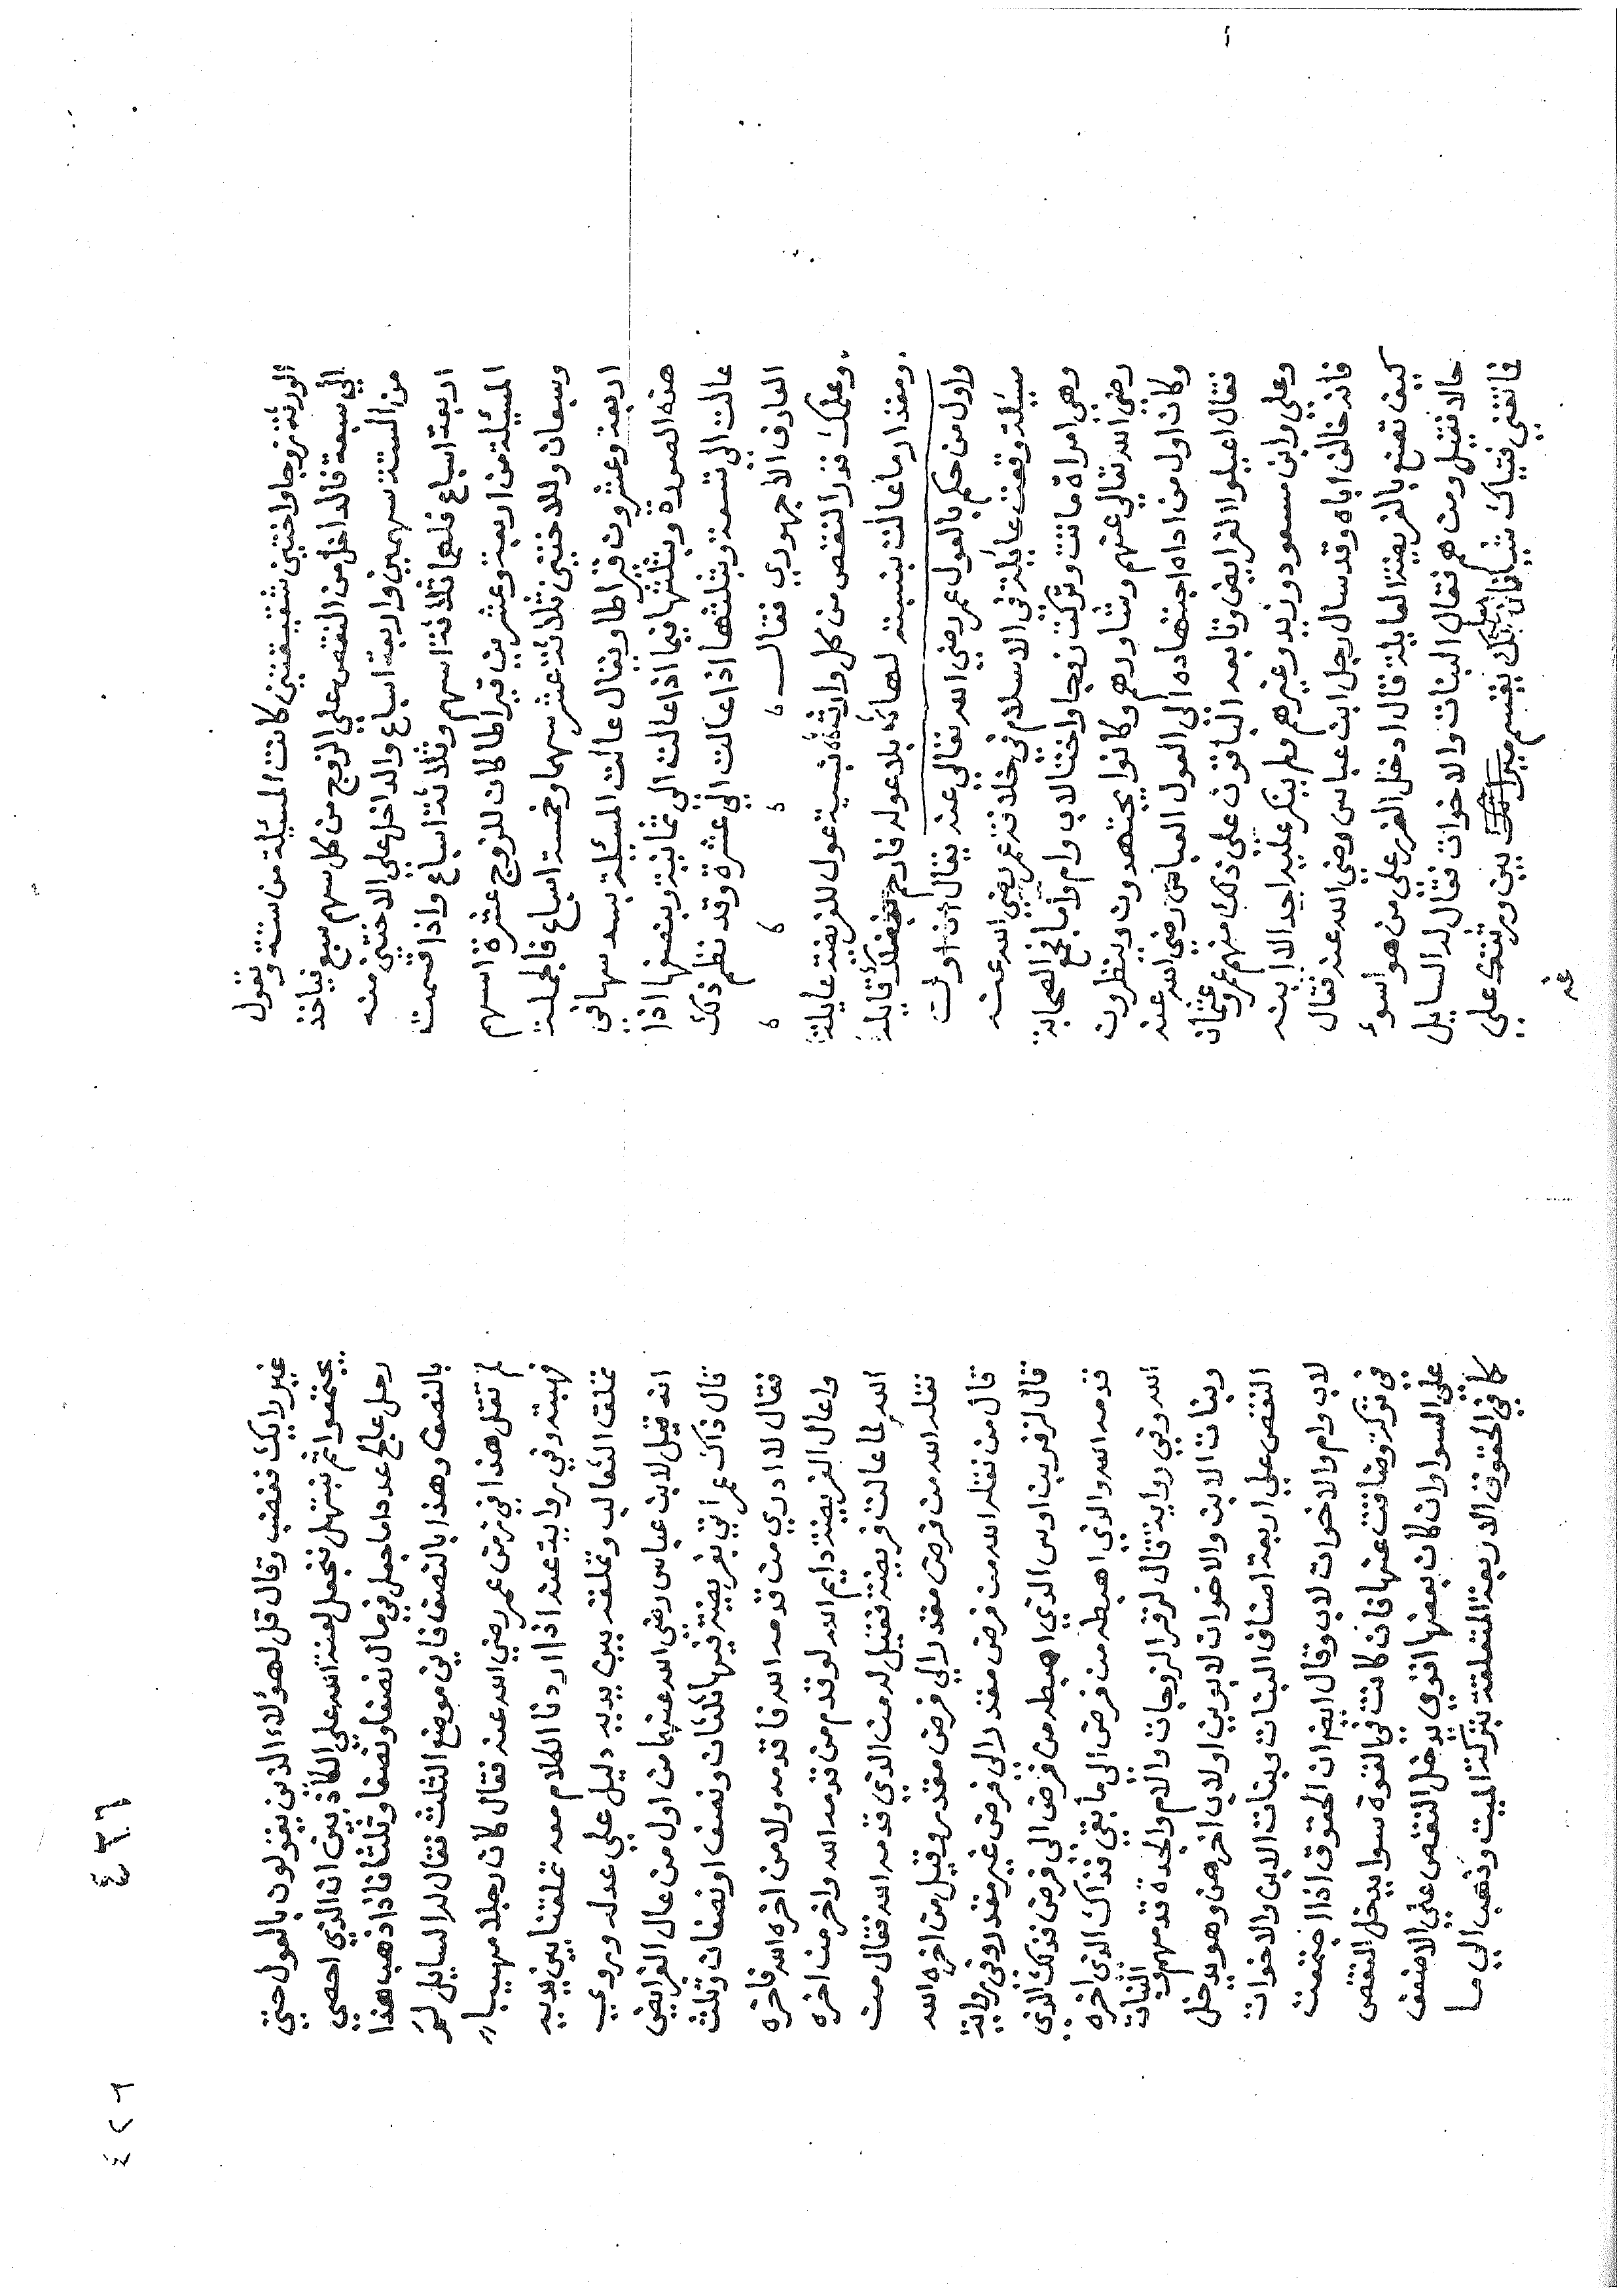 الورثة زوجا واختين شقيقتين كانت المسئلة من ستة وتعول
الي سبعة فالداخل من النقص علي الزوج من كل سهم سبع فياخذ
من الستة سهمين واربعة اسباع والداخل علي الاختين منه
اربعة اسباع فلهما ثلاثة اسهم وثلاثة اسباع واذا قسمت
المسئلة من اربعة وعشرين قيراطا كان للزوج عشرة اسهم
وسبعان وللاختين ثلاثة عشر سهما وخمسة اسباع فالجملة
اربعة وعشرون قيراطا ويقال عالت المسئلة بسدسها في
هذه الصورة وبثلثها فيما اذا عالت الي ثمانية وبنصفها اذا
عالت الي تسعة وبثلثيها اذا عالت الي عشرة وقد نظم ذلك
العارف الاجهوري فقال
وعلمك قدر النقص من كل وارث بنسبة عول للفريضة عايلة
ومقدار ما عالت بنسبته لها بلا عوله فارحم قايله
واول من حكم بالعول عمر رضي الله تعالي عنه يقال ان اول
مسئلة وقعت عايلة في الاسلام في خلافة عمر رضي الله عنه
وهي امراة ماتت وتركت زوجا واختا لاب وام واما فجمع الصحابة
رضي الله تعالي عنهم وشاورهم وكانوا يجتهدون وينظرون
وكان اول من اداه اجتهاده الي العول العباس رضي الله عنه
فقال اعيلوا الفرايض وتابعه الباقون علي ذلك منهم عمر وعثمان
وعلي وابن مسعود وزيد وغيرهم ولم ينكر عليه احد الا ابنه
فانه خالف اباه وقد سال رجل ابن عباس رضي الله عنه فقال
كيف تصنع بالفريضة العايلة قال ادخل الضرر علي من هو اسوء
حالا فقيل ومن هو فقال البنات والاخوات فقال له السايل
فما تغني فتياك شيا فان ميراثك يقسم بين ورثتك علي
غير
غير رايك فغضب وقال قل لهؤلاء الذين يقولون بالعول حتي
يجتمعوا ثم نبتهل فنجعل لعنة الله علي الكاذبين ان الذي احصي
رمل عالج عددا ما جعل في مال نصفا ونصفا وثلثا فاذا ذهب هذا
بالنصف وهذا بالنصف فاين موضع الثلث فقال له السايل لم
لم تقل هذا في زمن عمر رضي الله عنه فقال كان رجلا مهيبا
فهبته وفي رواية عنه اذا اردنا الكلام معه تملقنا بين يديه
تملق الثعالب وتملقه بين يديه دليل علي عدله وروي
انه قيل لابن عباس رضي الله عنهما من اول من عال الفرايض
قال ذاك عمر اتي بفريضة فيها ثلثان ونصف او نصفان وثلث
فقال لا ادري من قدمه الله فاقدمه ولا من اخره الله فاخره
واعال الفريضة وايم الله لو قدم من قدمه الله واخر من اخره
الله لما عالت فريضة فقيل له من الذي قدمه الله فقال من
نقله الله من فرض مقدر الي فرض مقدر وقيل من اخره الله
قال من نقله الله من فرض مقدر الي فرض غير مقدر وفي رواية
قال لزفر بن اوس الذي اهبطه من فرض الي فرض فذلك الذي
قدمه الله والذي اهبطه من فرض الي ما بقي فذاك الذي اخره
الله وفي رواية قال لزفر الزوجات والام والجدة قدمهم والبنات
وبنات الابن والاخوات لابوين اولاب اخرهن وهو يدخل
النقص علي اربعة اصناف البنات وبنات الابن والاخوات
لاب وام والاخوات لاب وقال ايضا ان الحقوق اذا اجتمعت
في تركة وضاقت عنها فان كانت في القوة سوا يدخل النقص
علي السوا وان كان بعضها اقوي يدخل النقص علي الاضعف
كما في الحقوق الاربعة المتعلقة بتركة الميت وذهب الي ما
٤٣٦
٤٢٦